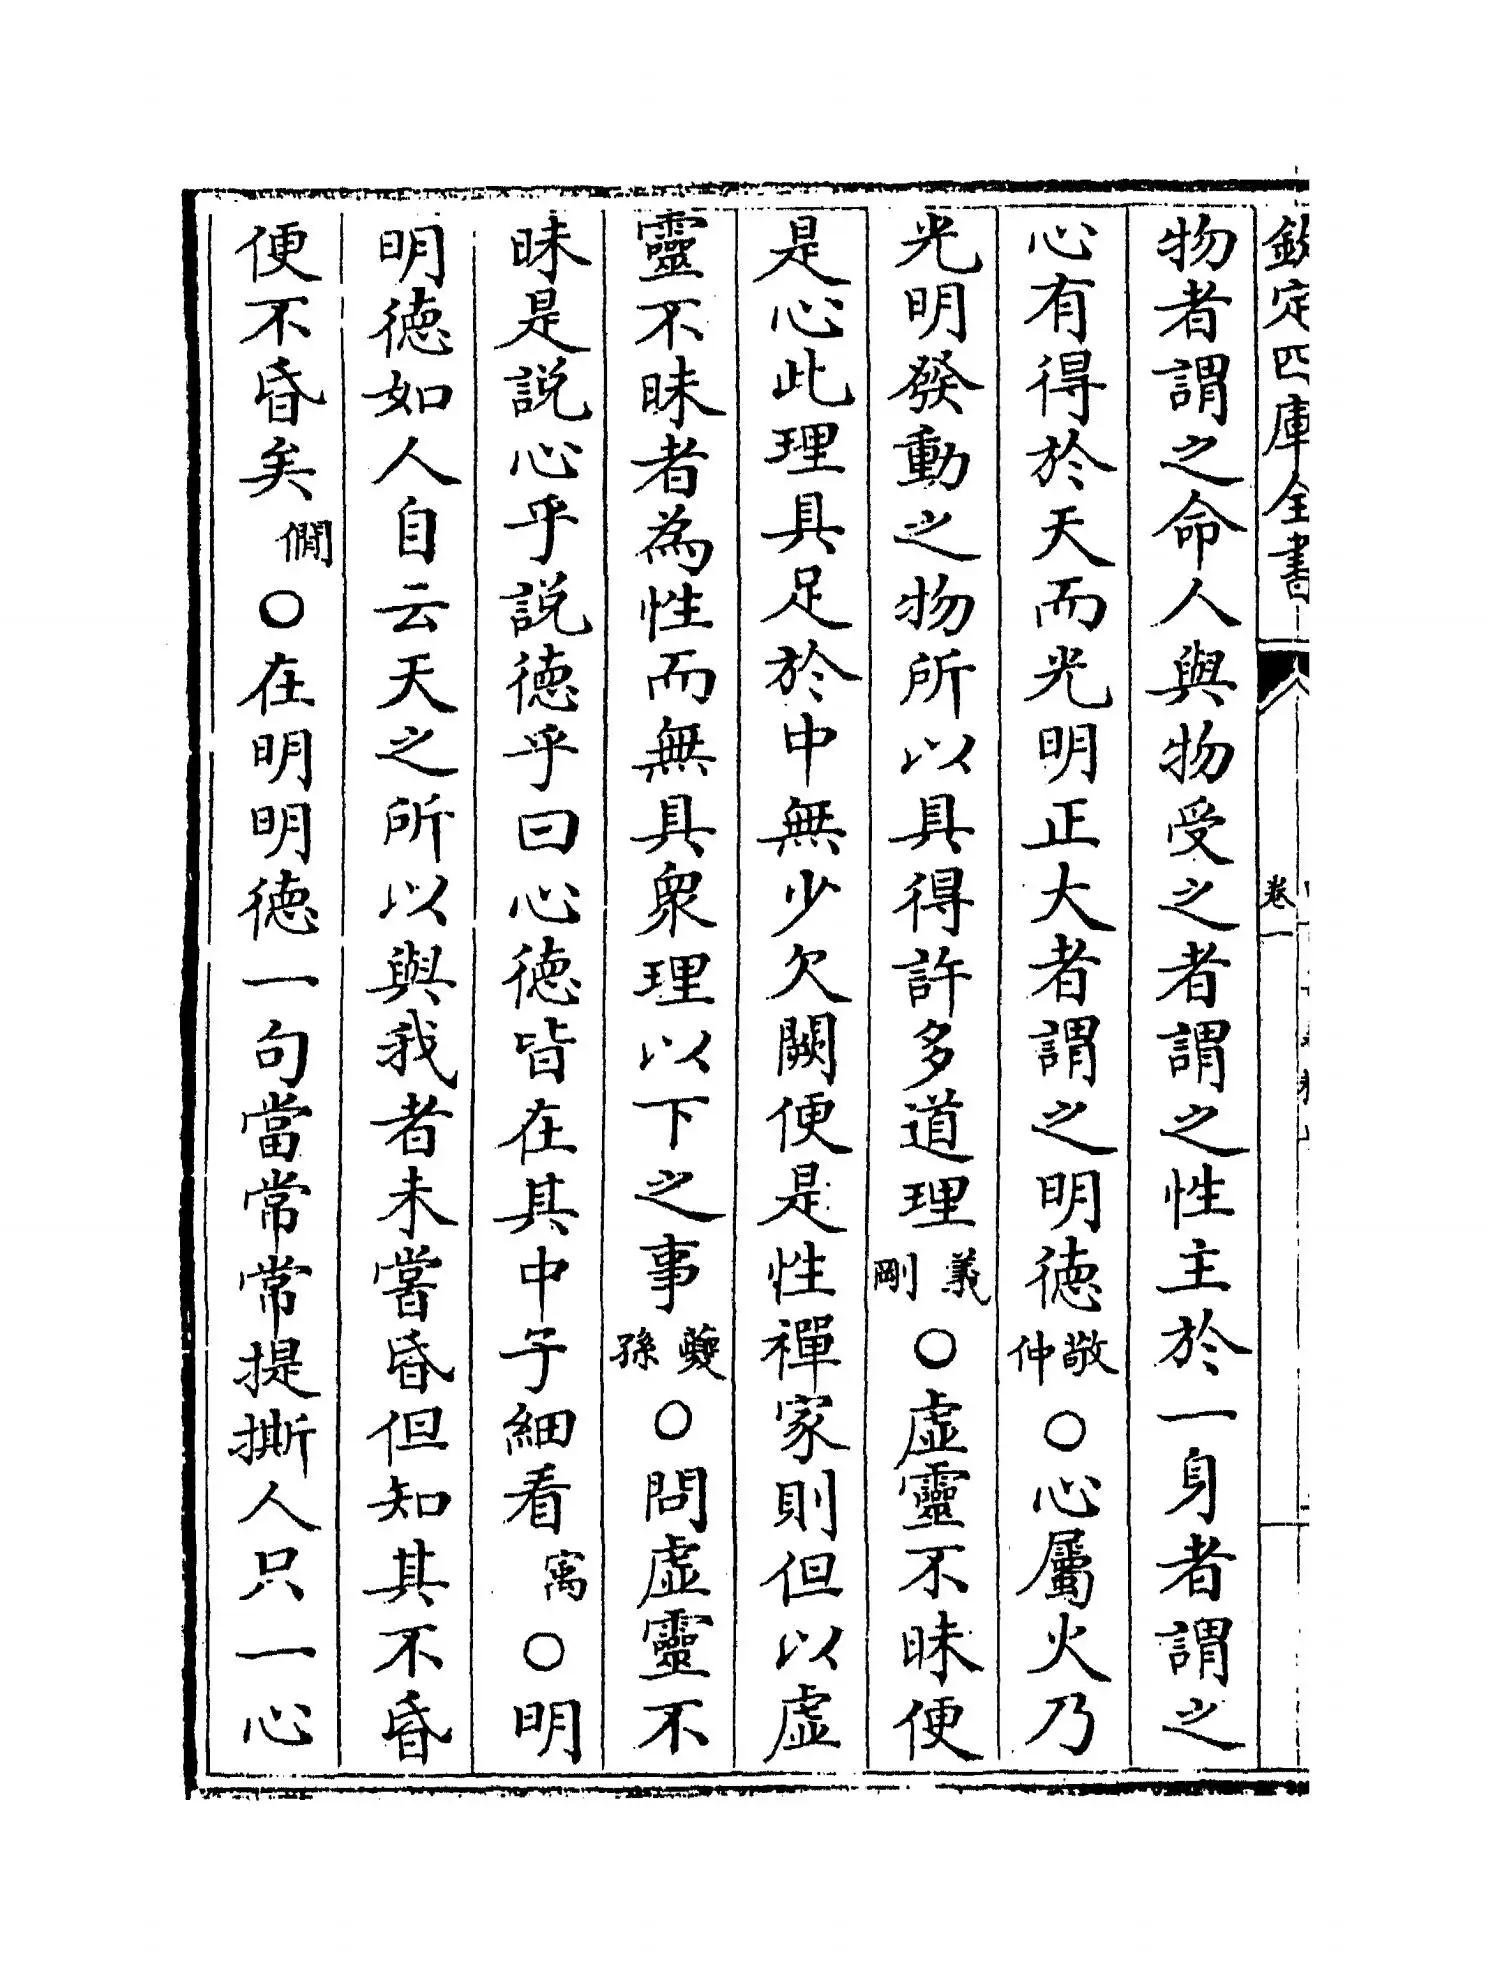 欽定四庫全書
卷一
物者謂之命人與物受之者謂之性主於一身者謂之
心有得於天而光明正大者謂之明德敬仲○心屬火乃
光明發動之物所以具得許多道理義剛○虚靈不昧便
是心此理具足於中無少欠闕便是性禪家則但以虚
靈不昧者為性而無具衆理以下之事夔孫○問虚靈不
昧是説心乎説徳乎曰心徳皆在其中子細看㝢○明
明徳如人自云天之所以與我者未嘗昏但知其不昏
便不昏矣僩○在明明徳一句當常常提撕人只一心